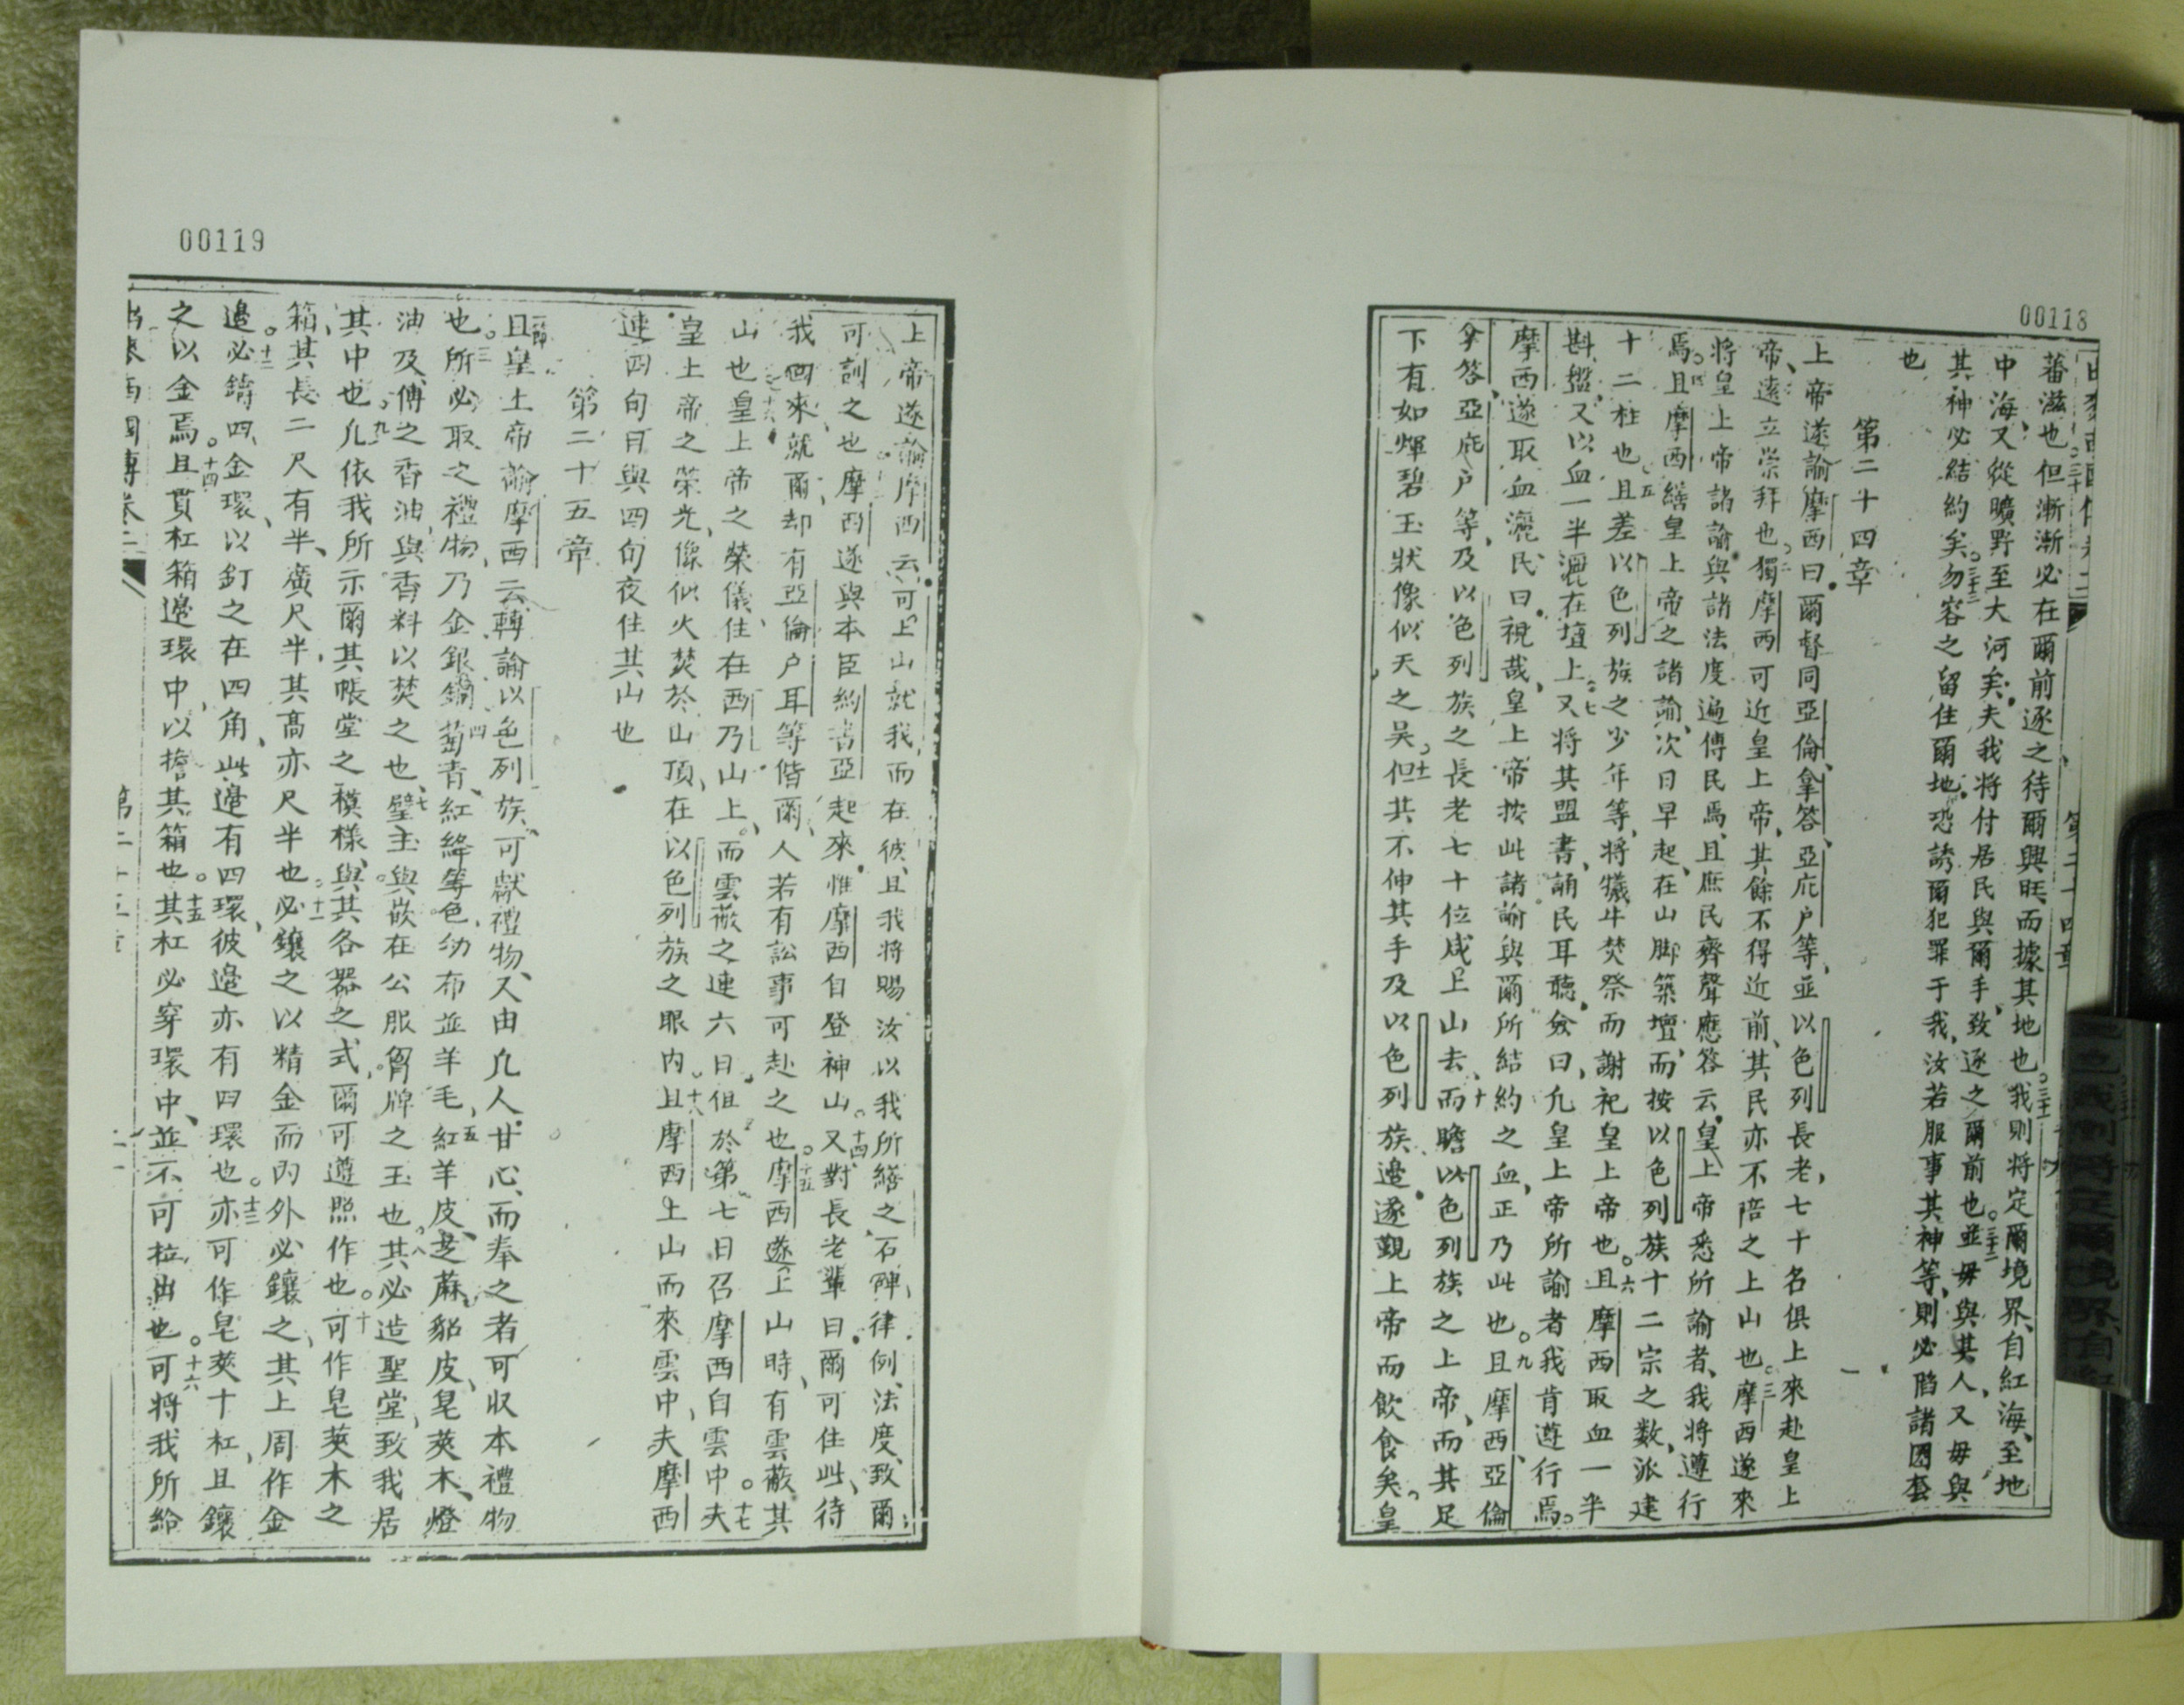 00118
蕃滋也但漸漸必在爾前逐之待爾興旺而據其地也。三十一我則將定爾境界、自紅海、至地
中海、又從曠野至大河矣。夫我將付居民與爾手、致逐之爾前也。三十二並毋與其人、又毋與
其神必結約矣。三十三勿容之留住爾地、恐誘爾犯罪于我、汝若服事其神等、則必陷諸罔套
也
第二十四章
上帝遂諭摩西曰、爾督同亞倫、拿答、亞庇户等、並以色列長老、七十名俱上來赴皇上
帝、遠立崇拜也。二獨摩西可近皇上帝、其餘不得近前、其民亦不陪之上山也。三摩西遂來
將皇上帝諸諭、與諸法度遍傳民焉、且庶民齊聲應答云、皇上帝悉所諭者、我將遵行
焉。四且摩西繕皇上帝之諸諭、次日早起、在山脚築壇、而按以色列族十二宗之数、派建
十二柱也。五且差以色列族之少年等、將犧牛焚祭而謝祀皇上帝也。六且摩西取血一半
斟盤、又以血一半灑在壇上。七又將其盟書、誦民耳聽、僉曰、凡皇上帝所諭者我肯遵行焉。
摩西遂取血灑民曰、視哉、皇上帝按此諸諭與爾所結約之血、正乃此也。九且摩西、亞倫
拿答、亞庇户等、及以色列族之長老七十位咸上山去、十而瞻以色列族之上帝、而其足
下有如煇碧玉狀像似天之昊。十一但其不伸其手及以色列族邊、遂覲上帝而飲食矣。皇
00119
上帝遂諭摩西云、可上山就我、而在彼、且我將賜汝以我所繕之石碑、律例、法度、致爾
可訓之也摩西遂與本臣約書亞起來、惟摩西自登神山。十四又對長老輩曰、爾可住此、待
我回來就爾、却有亞倫户耳等偕爾、人若有訟事可赴之也。十五摩西遂上山時、有雲蔽其
山也。十六皇上帝之榮儀、住在西乃山上。而雲蔽之連六日、但於第七日召摩西自雲中。十七夫
皇上帝之榮光、像似火焚於山頂、在以色列族之眼内。十八且摩西上山而來雲中、夫摩西
連四旬日與四旬夜住其山也
第二十五章
一節且皇上帝諭摩西云、轉諭以色列族、可獻禮物、又由凡人、甘心、而奉之者可收本禮物
也。三所必取之禮物、乃金銀銅、四葡青、紅絳等色、幼布並羊毛、五紅羊皮、芝蔴貂皮、皂莢木、燈
油及傅之香油、與香料以焚之也、七璧玉與嵌在公服胷牌之玉也。八其必造聖堂、致我居
其中也。九凡依我所示爾其帳堂之模樣、與其各器之式、爾可遵照作也。十可作皂莢木之
箱、其長二尺有半、廣尺半、其高亦尺半也。十一必鑲之以精金而内外必鑲之、其上周作金
邊。十二必鑄四金環、以釘之在四角、此邊有四環、彼邊亦有四環也。十三亦可作皂莢十杠、且鑲
之以金焉。十四且貫杠箱邊環中、以擔其箱也。十五其杠必穿環中、並不可拉出也。十六可將我所給